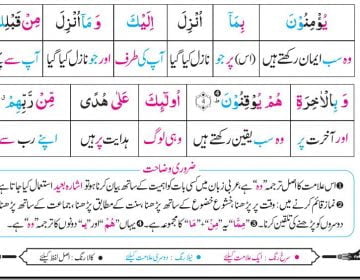 يُؤْمِنُوْنَ بِمَاۤ اُنْزِلَ اِلَيْكَ وَ مَاۤ اُنْزِلَ مِنْ
وہ سب ایمان رکھتے ہیں (اس) پر جو نازل کیا گیا آپ کی طرف اور جو نازل کیا گیا آپ سے
وَ بِالْاٰخِرَةِ هُمْ يُوْقِنُوْنَ ۴ اُولٰٓئِكَ عَلٰى هُدًى مِّنْ رَّبِّهِمْ
اور آخرت پر وہ سب یقین رکھتے ہیں وہی لوگ ہدایت پر ہیں اپنے رب سے
ضروری وضاحت
❶ اس علامت کا اصل ترجمہ "وہ" ہے، عربی زبان میں کسی بات کو اہمیت کے ساتھ بیان کرنا ہو تو اشارہ بعید استعمال کیا جاتا ہے
❷ نماز قائم کرنے میں: پورا پڑھنا، خشوع خضوع کے ساتھ پڑھنا، سنت کے مطابق پڑھنا، جماعت کے ساتھ پڑھنا
دوسروں کو پڑھنے کی تلقین کرنا۔ "مِمَّا" یہ "مِنْ" + "مَا" کا مجموعہ ہے۔ ❹ یہاں "هُمْ" اور "یہ" دونوں کا ترجمہ "وہ" ہے۔
سرخ رنگ: ایک علامت کیلئے نیلا رنگ: دوسری علامت کیلئے کالا رنگ: اصل لفظ کیلئے